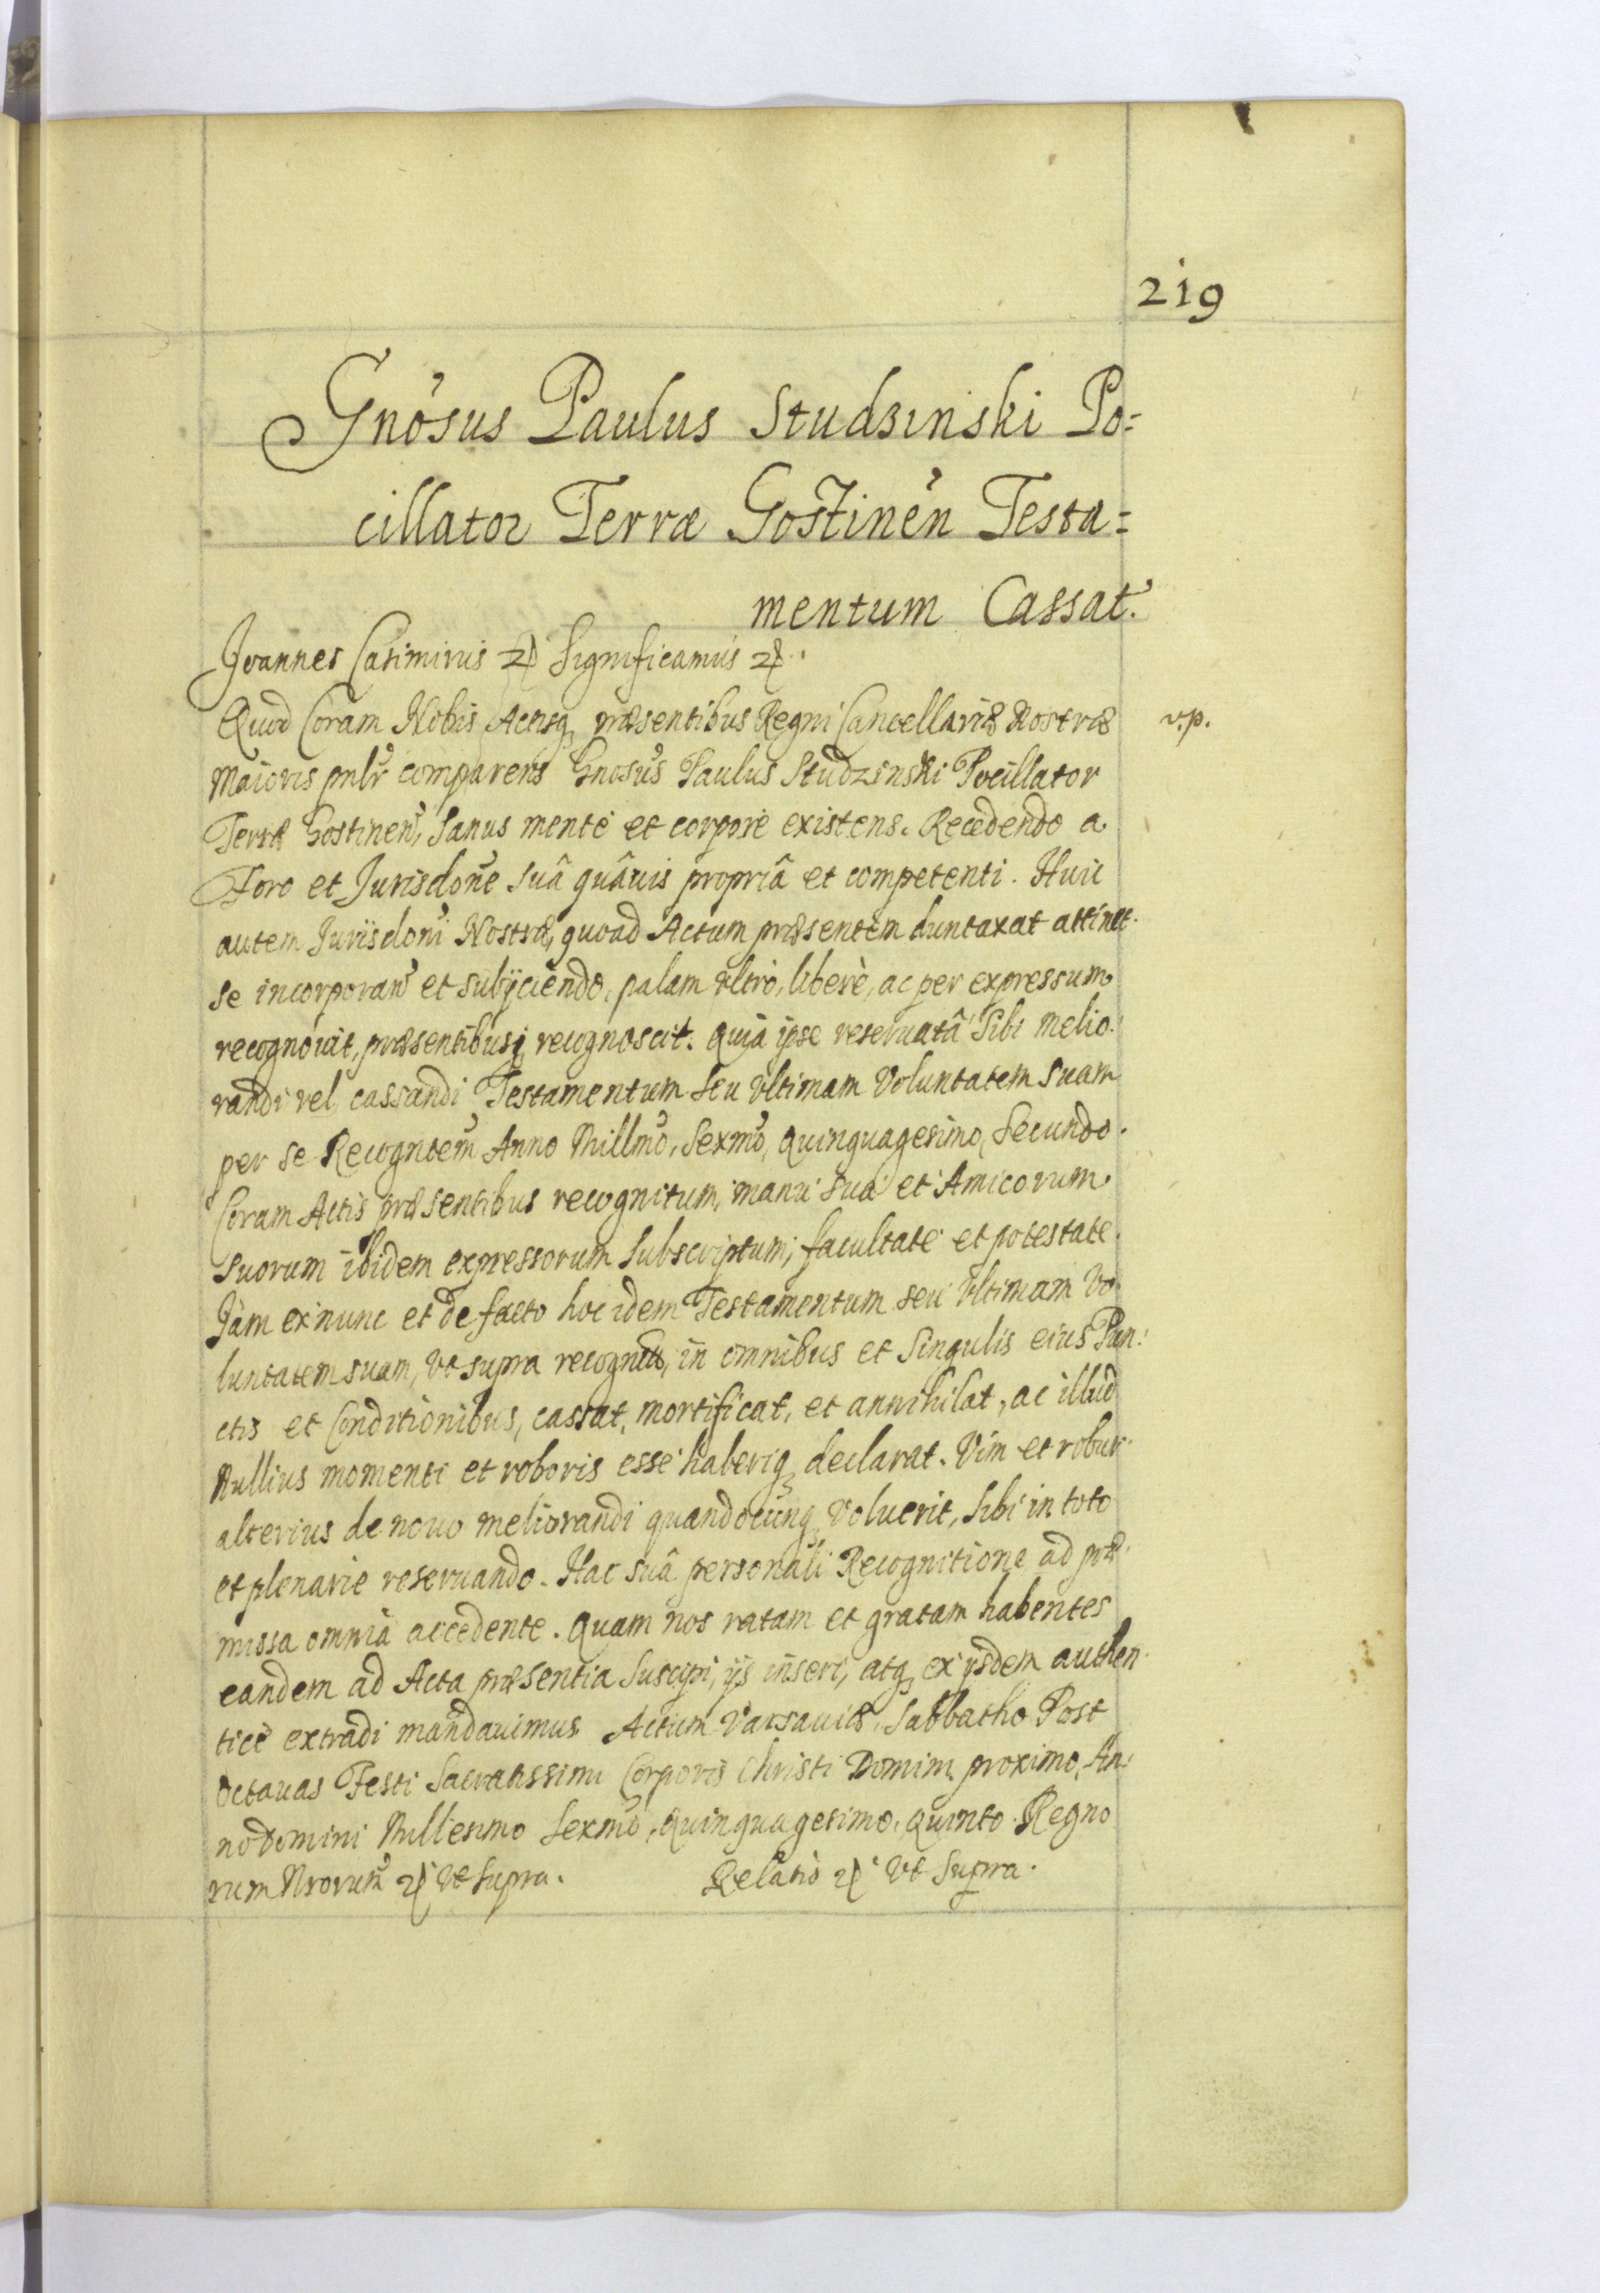 219
Gnosus Paulus Studzinski Po=
cillator Terræ Gostinen Testa=
mentum Cassat.
Joannes Casimirus Significamus
Quod Coram Nobis Actisq præsentibus Regni Cancellariæ Nostræ
v.p.
Maioris pnlr comparens Gnosus Paulus Studzinski Pocillator
Terræ Gostinen, Sanus mente et corpore existens. Recedendo a
Foro et Jurisdone suâ quâvis propriâ et competenti. Huic
autem Jurisdoni Nostræ, quoad Actum præsentem duntaxat attinet
se incorporan et subijciendo, palam ultrò, liberè, ac per expressum
recognovit, præsentibusq recognoscit. Quia ipse reservatâ Sibi melio
randi vel cassandi Testamentum seu Ultimam Voluntatem suam
per se Recogntem Anno Millmo, Sexmo, Quinquagesimo, Secundo.
Coram Actis præsentibus recognitum, manu sua et Amicorum
Suorum ibidem expressorum Subscriptum, facultate et potestate
Jam ex nunc et de facto hoc idem Testamentum seu Ultimam Vo
luntatem suam, Ut supra in omnibus et Singulis eius Pun:
ctis et Conditionibus, cassat, mortificat, et annihilat, ac illud
Nullius momenti et roboris esse haberiq declarat. Vim et robur
alterius de novo meliorandi quandocunq Voluerit, Sibi in toto
et plenarie reservando. Hac suâ personali Recognitione ad præ
missa omnia accedente. Quam nos ratam et gratam habentes
eandem ad Acta præsentia Suscipi, ijs inseri, atq ex ijsdem authen
ticè extradi mandavimus Actum Varsaviæ, Sabbatho Post
Octavas Festi Sacratissimi Corporis Christi Domini proximo, An:
no Domini Millesimo Sexmo, Quinquagesimo, Quinto. Regno
rum Nrorum Ut Supra. Relatio Ut Supra.